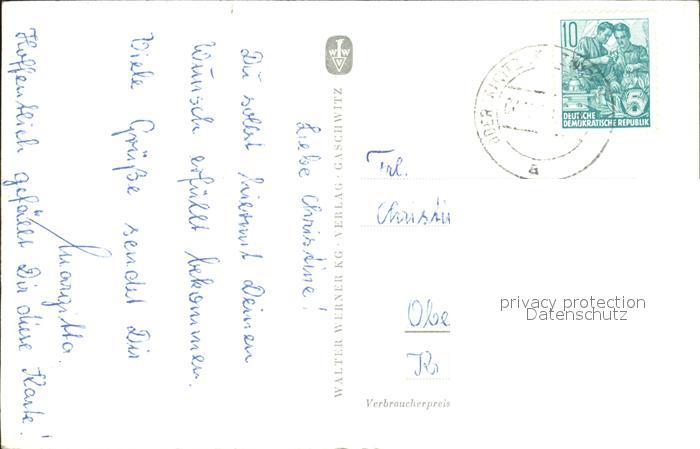 Liebe Christine!
Du sollst hiermit Deinen
Wunsch erfüllt bekommen.
Viele Grüße sendet Dir
Margitta.
Hoffentlich gefällt Dir diese Karte!
WALTER WERNER KG · VERLAG · GASCHWITZ
10
DEUTSCHE
DEMOKRATISCHE REPUBLIK
5
a
Frl.
Christi
Obe
Kr
privacy protection
Datenschutz
Verbraucherpreis